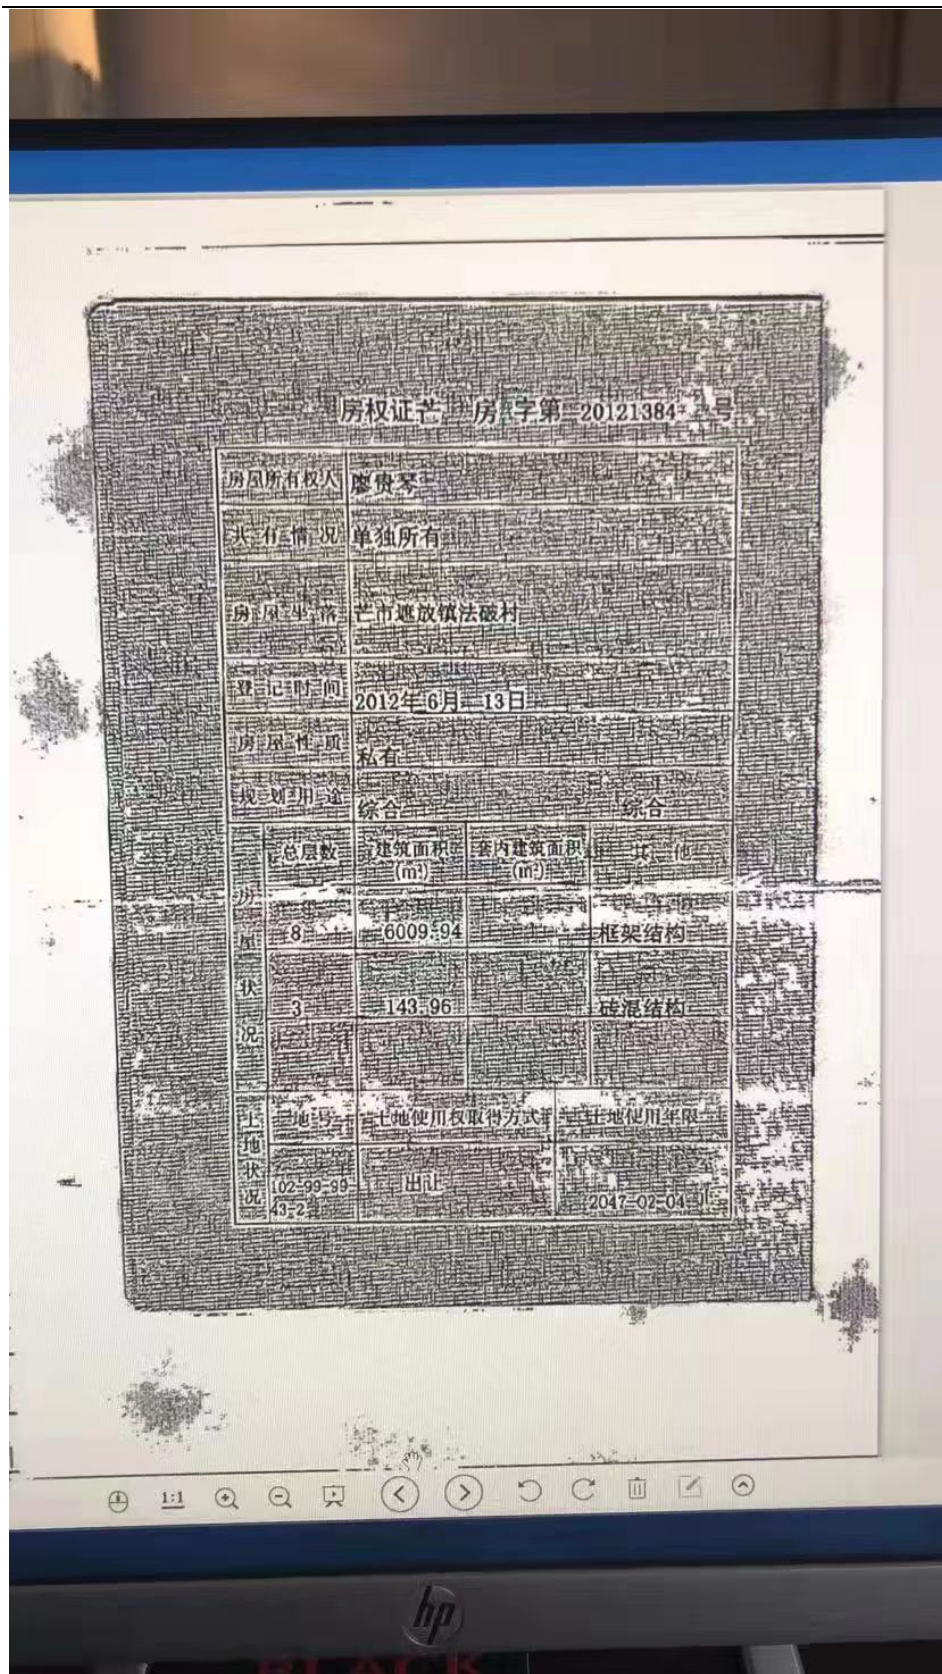 房权证芒 房 字第 20121384 号
房屋所有权人 廖贵琴
共有情况 单独所有
房屋坐落 芒市遮放镇法破村
登记时间 2012年 6月 13日
房屋性质 私有
规划用途 综合 综合
房屋状况
总层数 建筑面积(m²) 套内建筑面积(m²) 其他
8 6009.94 框架结构
3 143.96 砖混结构
土地状况
地号 土地使用权取得方式 土地使用年限
102-99-99-43-2 出让 2047-02-04
1:1
hp